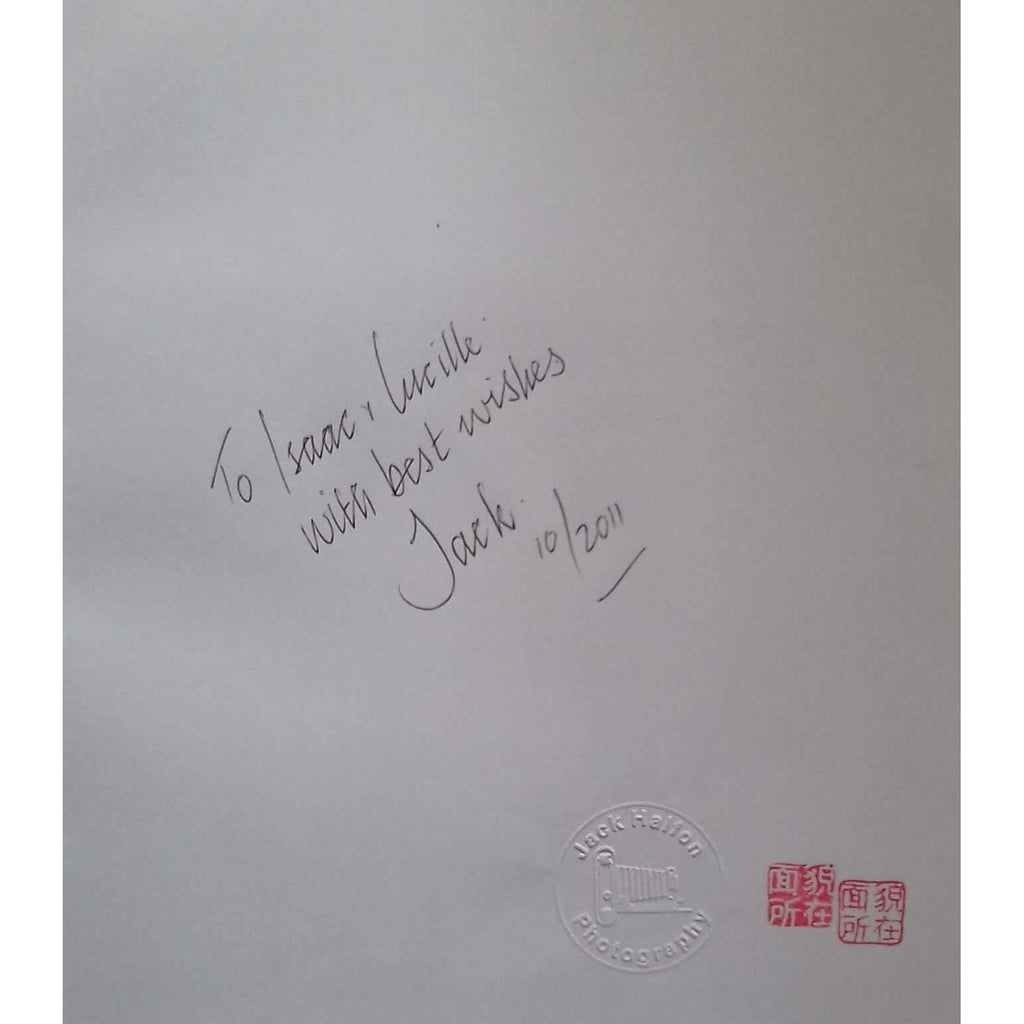 To Isaac & Lucille
with best wishes
Jack. 10/2011
Jack Halfon
Photography
貌在
面所
貌在
面所